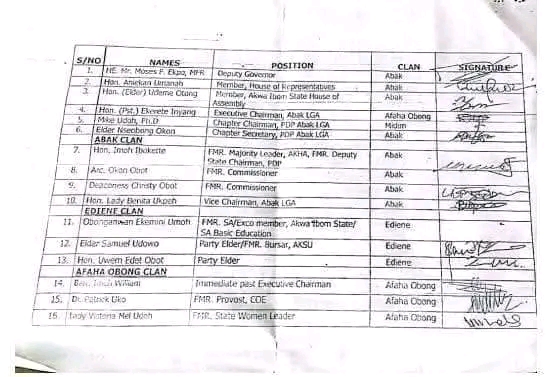 S/NO NAMES POSITION CLAN SIGNATURE
1. HE. Mr. Moses F. Ekpo, MFR Deputy Governor Abak
2. Hon. Aniekan Umanah Member, House of Representatives Abak
3. Hon. (Elder) Udeme Otong Member, Akwa Ibom State House of Abak
Assembly
4. Hon. (Pst.) Ekerete Inyang Executive Chairman, Abak LGA Afaha Obong
5. Mike Udoh, Ph.D Chapter Chairman, PDP Abak LGA Midim
6. Elder Nsenbong Okon Chapter Secretary, PDP Abak LGA Abak
ABAK CLAN
7. Hon. Imoh Ibokette FMR. Majority Leader, AKHA, FMR. Deputy Abak
State Chairman, PDP
8. Arc. Okon Obot FMR. Commissioner Abak
9. Deaconess Christy Obot FMR. Commissioner Abak
10. Hon. Lady Benita Ukpeh Vice Chairman, Abak LGA Abak
EDIENE CLAN
11. Obonganwan Ekemini Umoh FMR. SA/Exco member, Akwa Ibom State/ Ediene
SA Basic Education
12. Elder Samuel Udowo Party Elder/FMR. Bursar, AKSU Ediene
13. Hon. Uwem Edet Obot Party Elder Ediene
AFAHA OBONG CLAN
14. William Immediate past Executive Chairman Afaha Obong
15. Dr. Patrick Uko FMR. Provost, COE Afaha Obong
16. Lady Victoria Mel Udoh FMR. State Women Leader Afaha Obong